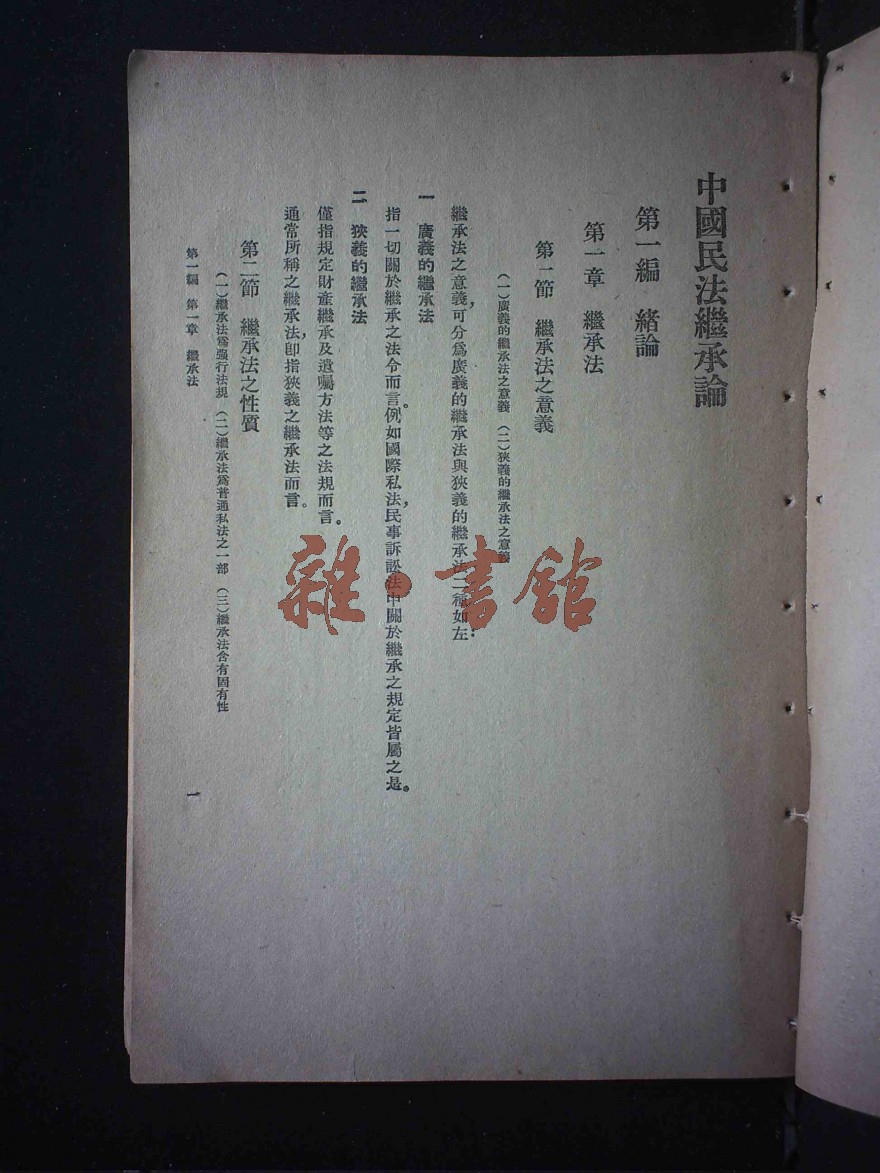 中國民法繼承論
第一編　緒論
第一章　繼承法
第一節　繼承法之意義
（一）廣義的繼承法之意義（二）狹義的繼承法之意義
繼承法之意義，可分爲廣義的繼承法與狹義的繼承法二種如左：
一　廣義的繼承法
指一切關於繼承之法令而言。例如國際私法，民事訴訟法中關於繼承之規定皆屬之是。
二　狹義的繼承法
僅指規定財產繼承及遺囑方法等之法規而言。
通常所稱之繼承法，卽指狹義之繼承法而言。
第二節　繼承法之性質
（一）繼承法爲强行法規（二）繼承法爲普通私法之一部（三）繼承法含有固有性
第一編　第一章　繼承法
一
雜·書館